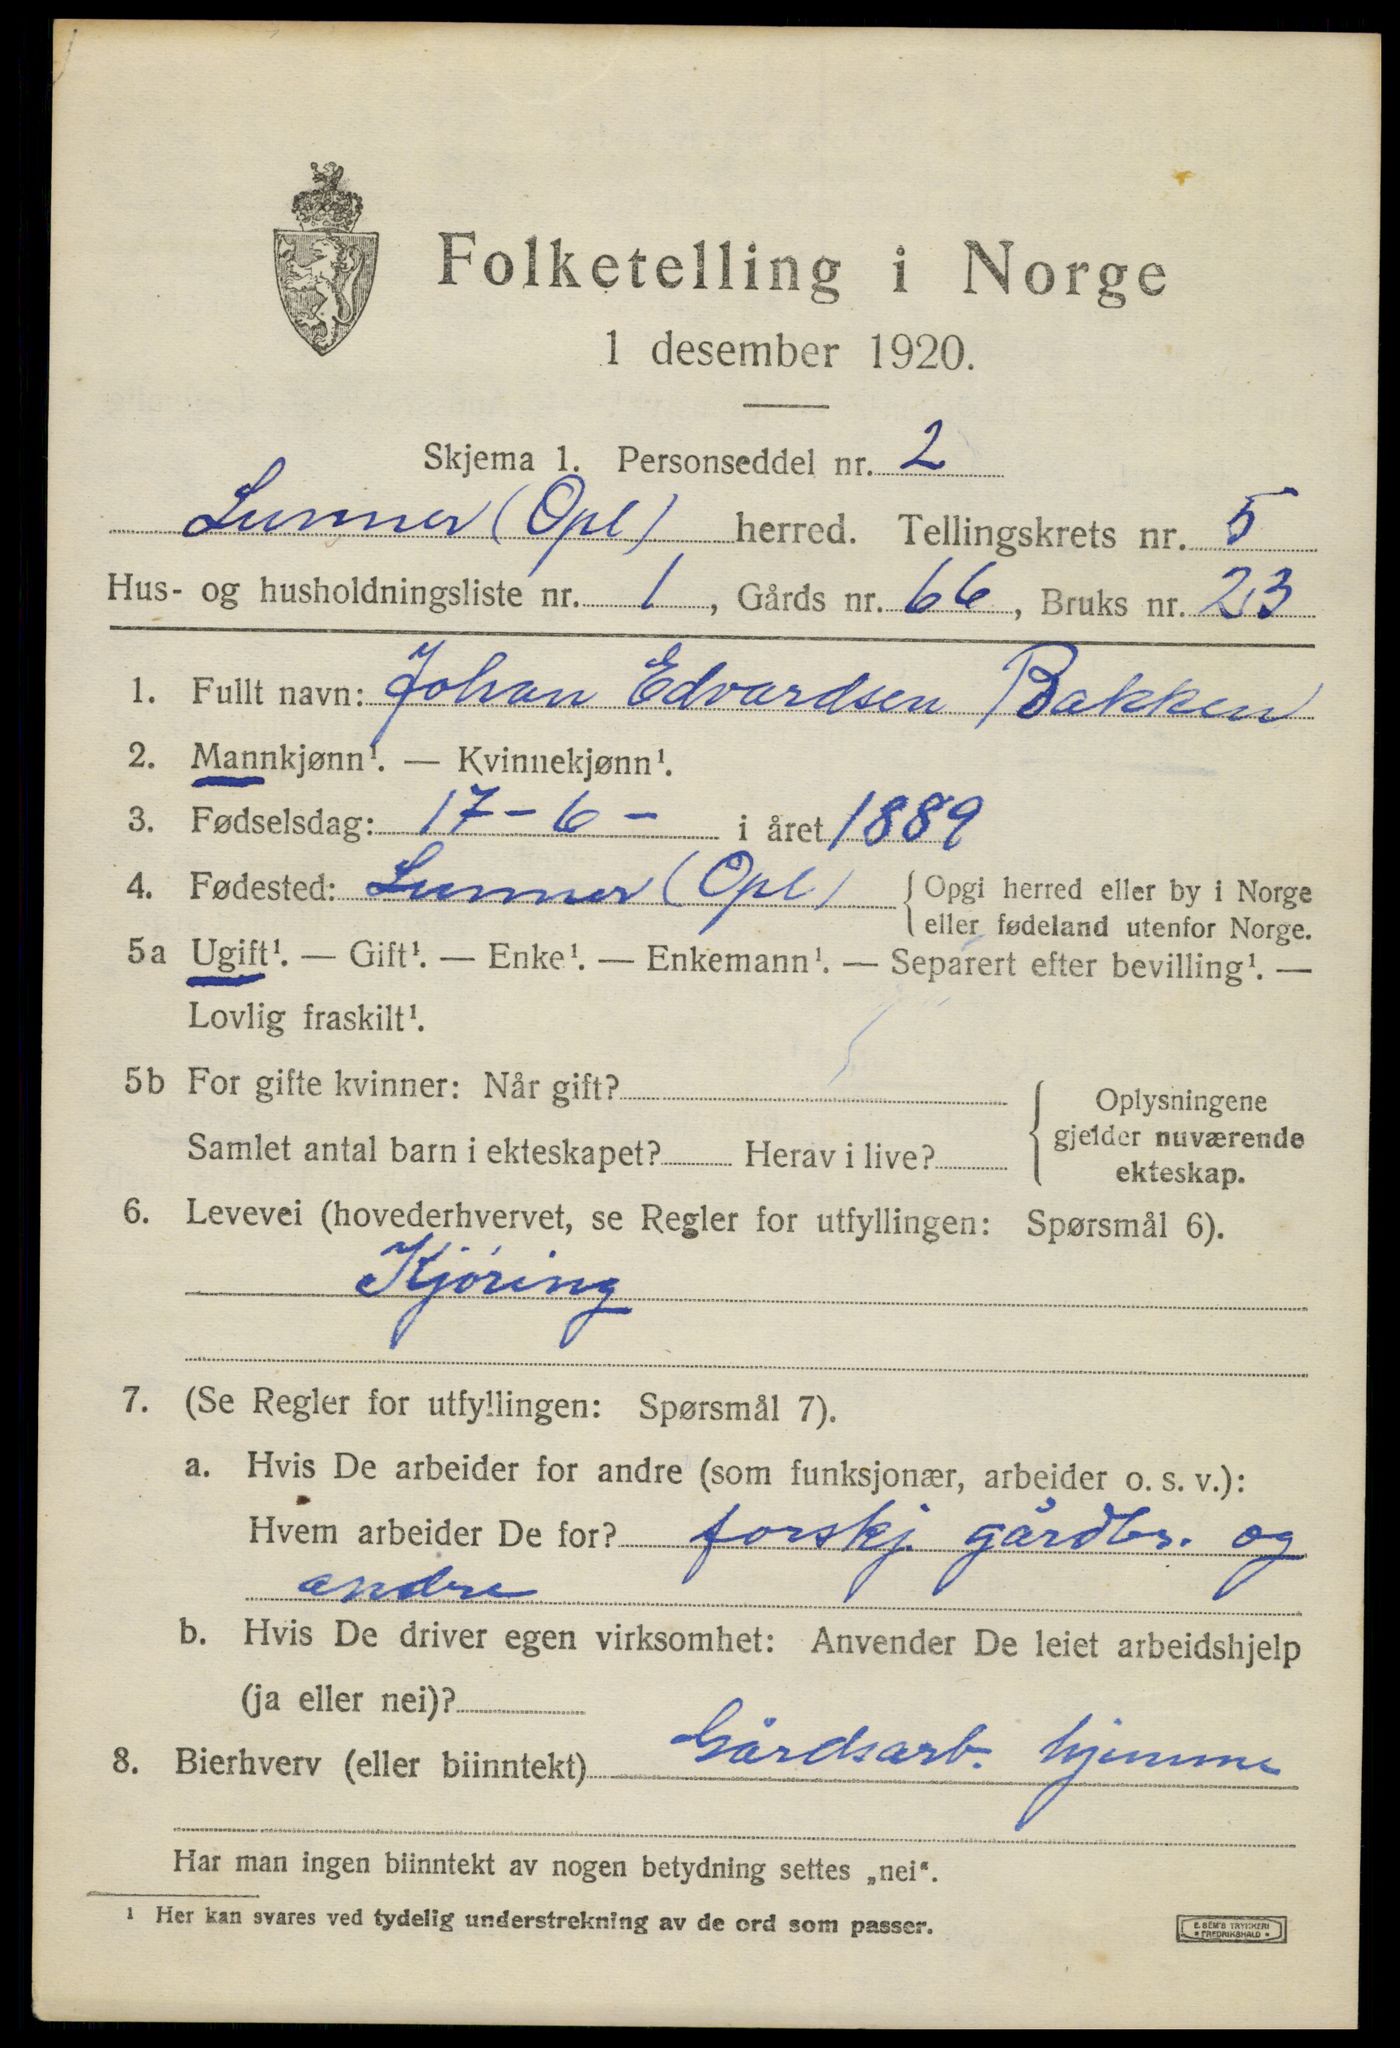 Folketelling i Norge
1 desember 1920.
Skjema 1. Personseddel nr. 2
Lunner (Opl) herred. Tellingskrets nr. 5
Hus- og husholdningsliste nr. 1, Gårds nr. 66, Bruks nr. 23
1. Fullt navn: Johan Edvardsen Bakken
2. Mannkjønn¹. — Kvinnekjønn¹.
3. Fødselsdag: 17 - 6 - i året 1889
4. Fødested: Lunner (Opl) { Opgi herred eller by i Norge
eller fødeland utenfor Norge.
5a Ugift¹. — Gift¹. — Enke¹. — Enkemann¹. — Separert efter bevilling¹. —
Lovlig fraskilt¹.
5b For gifte kvinner: Når gift?
Samlet antal barn i ekteskapet? Herav i live?
{ Oplysningene
gjelder nuværende
ekteskap.
6. Levevei (hovederhvervet, se Regler for utfyllingen: Spørsmål 6).
Kjøring
7. (Se Regler for utfyllingen: Spørsmål 7).
a. Hvis De arbeider for andre (som funksjonær, arbeider o. s. v.):
Hvem arbeider De for? forskj. gårdbr. og
andre
b. Hvis De driver egen virksomhet: Anvender De leiet arbeidshjelp
(ja eller nei)?
8. Bierhverv (eller biinntekt) Gårdsarb. hjemme
Har man ingen biinntekt av nogen betydning settes „nei“.
¹ Her kan svares ved tydelig understrekning av de ord som passer.
E. SEM'S TRYKKERI
* FREDRIKSHALD *